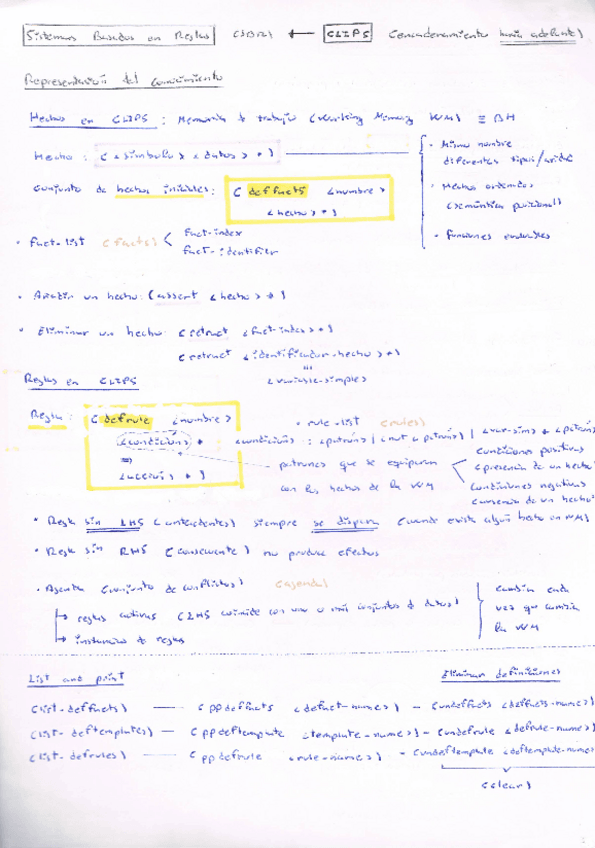 Sistemas Basados en Reglas (SBR) ← CLIPS (encadenamiento hacia adelante)
Representación del conocimiento
Hechos en CLIPS : Memoria de trabajo (Working Memory WM) ≡ BH
Hecho : ( <símbolo> <datos> * )
· Mismo nombre
diferentes tipos/aridad
· Hechos ordenados
(semántica posicional)
· funciones evaluables
Conjunto de hechos iniciales : ( deffacts <nombre>
<hecho> * )
· Fact-list (facts) < fact-index
fact-identifier
· Añadir un hecho: (assert <hecho> + )
· Eliminar un hecho: (retract <fact-index> + )
(retract <identificador-hecho> + )
≡
<variable-simple>
Reglas en CLIPS
Regla : ( defrule <nombre>
<condición> *
=>
<acción> * )
· rule-list (rules)
<condición> : <patrón> | (not <patrón>) | <var-sim> ← <patrón>
patrones que se equiparan
con los hechos de la WM
condiciones positivas
(presencia de un hecho)
condiciones negativas
(ausencia de un hecho)
· Regla sin LHS (antecedentes) siempre se dispara (cuando existe algún hecho en WM)
· Regla sin RHS (consecuente) no produce efectos
· Agenda (conjunto de conflictos) (agenda)
↳ reglas activas (LHS coincide con uno o más conjuntos de datos)
↳ instancias de reglas
cambia cada
vez que cambia
la WM
List and print
Eliminar definiciones
(list-deffacts) — (ppdeffacts <deffact-name>) — (undeffacts <deffacts-name>)
(list-deftemplates) — (ppdeftemplate <template-name>) — (undefrule <defrule-name>)
(list-defrules) — (ppdefrule <rule-name>) — (undeftemplate <deftemplate-name>
(clear)